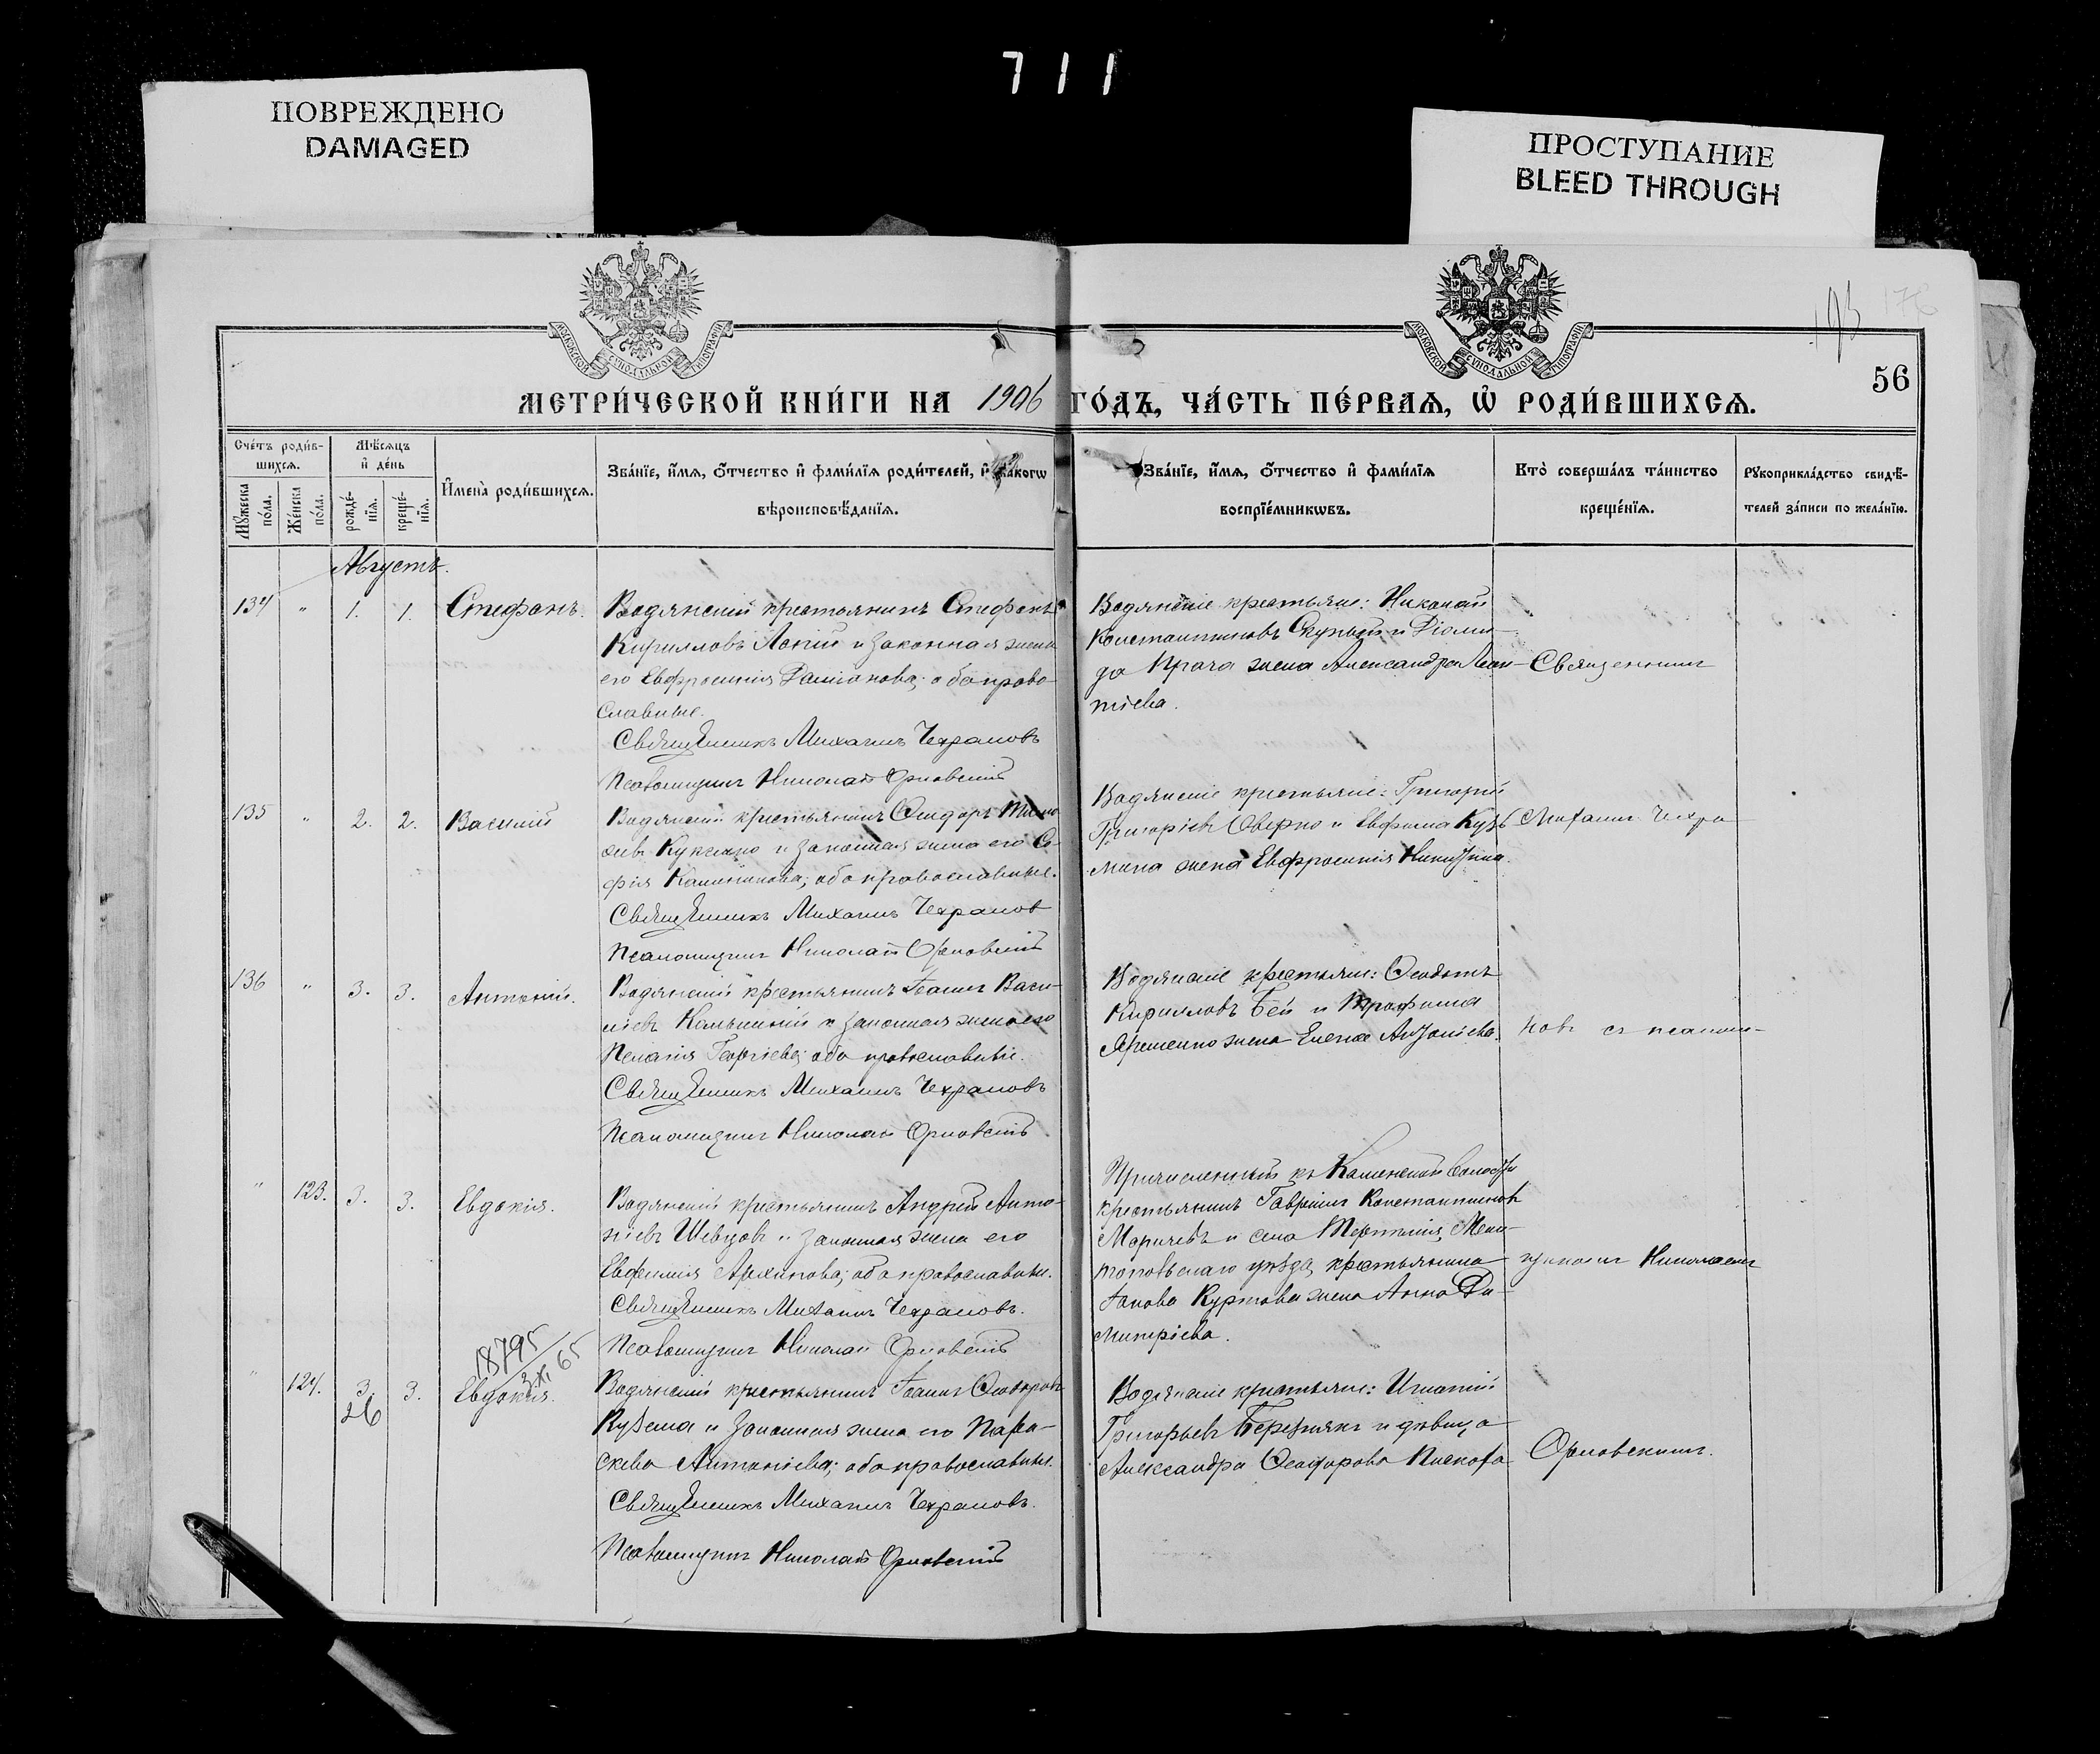 711
ПОВРЕЖДЕНО
DAMAGED
ПРОСТУПАНИЕ
BLEED THROUGH
МОСКОВСКОЙ СѴНОДАЛЬНОЙ ТИПОГРАФІИ
МОСКОВСКОЙ СѴНОДАЛЬНОЙ ТИПОГРАФІИ
56
МЕТРИ́ЧЕСКОЙ КНИ́ГИ НА 1906 ГО́ДЪ, ЧА́СТЬ ПЕ́РВАѦ, Ѡ҆ РОДИ́ВШИХСѦ.
Сче́тъ роди́в-
шихсѧ.
Мѣ́сѧцъ
и҆ де́нь
Мꙋ́жеска
по́ла.
Же́нска
по́ла.
рожде́-
нїѧ.
креще́-
нїѧ.
И҆мена̀ роди́вшихсѧ.
Зва́нїе, и҆́мѧ, ѻ҆́тчество и҆ фами́лїѧ роди́телей, и҆ како́гѡ
вѣроисповѣ́данїѧ.
Зва́нїе, и҆́мѧ, ѻ҆́тчество и҆ фами́лїѧ
воспрїе́мникѡвъ.
Кто̀ соверша́лъ та́инство
креще́нїѧ.
Рꙋкоприкла́дство свидѣ́-
телей за́писи по жела́нїю.
Августъ.
134 " 1. 1. Стефанъ.
Водянскій крестьянинъ Стефанъ
Кирилловъ и законная жена
его Евфросинія Даміанова; оба право-
славные.
Священникъ Михаилъ Чехрановъ
Псаломщикъ Николай Орловскій
Водянскіе крестьяне: Николай
Константиновъ и Діоми-
да жена Александра Леон-
тіева.
Священникъ
135 " 2. 2. Василій
Водянскій крестьянинъ Сидоръ Тимо-
еевъ и законная жена его Со-
фія оба православные.
Священникъ Михаилъ Чехрановъ
Псаломщикъ Николай Орловскій
Водянскіе крестьяне: Григорій
Григорьевъ и Евфима Кузь-
мина жена Евфросинія Никитина.
Михаилъ Чехра
136 " 3. 3. Антоній.
Водянскій крестьянинъ Іоаннъ Васи-
ліевъ и законная жена его
Пелагія Георгіева; оба православные.
Священникъ Михаилъ Чехрановъ
Псаломщикъ Николай Орловскій
Водянскіе крестьяне: Ѳеодотъ
Кирилловъ Бей и Трофима
Яременко жена Елена
новъ съ псалом-
" 123. 3. 3. Евдокія.
Водянскій крестьянинъ Андрей Анто-
ніевъ Шевцовъ и законная жена его
Евфимія Архипова; оба православные.
Священникъ Михаилъ Чехрановъ.
Псаломщикъ Николай Орловскій
Причисленный къ Каменской волости
крестьянинъ Гавріилъ Константиновъ
и села Мели-
топольскаго уѣзда, крестьянина
Іакова Куртова жена Анна Ди-
митріева.
щикомъ Николаемъ
18795
3.XI 65
" 124. 3. 3. Евдокія.
26
Водянскій крестьянинъ Іоаннъ Ѳеодоровъ
Кузема и законная жена его Пара-
скева Антоніева; оба православные.
Священникъ Михаилъ Чехрановъ.
Псаломщикъ Николай Орловскій
Водянскіе крестьяне: Игнатій
Григорьевъ Березнякъ и дѣвица
Александра Ѳеодорова
Орловскимъ.